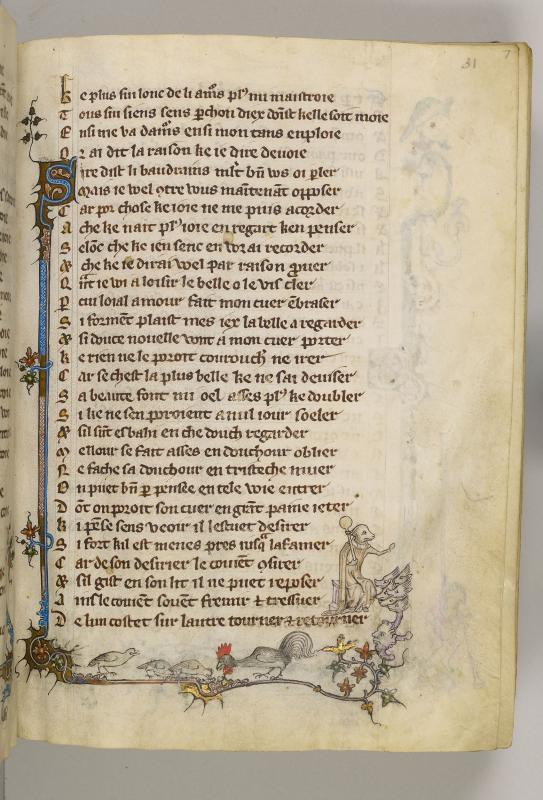 31
7
Ke plus fin loue de li amors pl9 mi maistroie
Tous sui siens sens p chou diex doist kelle soit moie
Ensi me va damors ensi mon tans enploie
Or ai dit la raison ke ie dire deuoie
Sire dist li baudrains mlt bn ws oi pler
Mais ie wel 9tre vous maintenant opposer
Car por chose ke ioie ne me puis acorder
A che ke nait pl9 ioie en regart ken penser
Selonc che ke ien senc en vorai recorder
& che ke ie dirai wel par raison prouer
Qnt ie wi a loisir le belle o le vis cler
P cui loial amour fait mon cuer enbraser
Si forment plaist mes iex la belle a regarder
& si douce nouelle vont a mon cuer porter
Ke rien ne le poroit courouch ne irer
Car se chest la plus belle ke ne sai deuiser
Sa beaute font mi oel asses pl9 ke doubler
Si ke ne sen poroient a nul iour soeler
& sil sunt esbahi en che douch regarder
Mellour se fait asses en douchour oblier
Ne fache sa douchour en tristeche muer
On puet bn p pensee en tele voie entrer
Dont on poroit son cuer en grant paine ieter
Ki pense sens veoir il lestuet desirer
Si fort kil est menes pres iusqa lafamer
Car de son desirier le couient 9sirer
& sil gist en son lit il ne puet reposer
Ains le couient souent fremir & tressuer
De lun costet sur lautre tourner & retourner